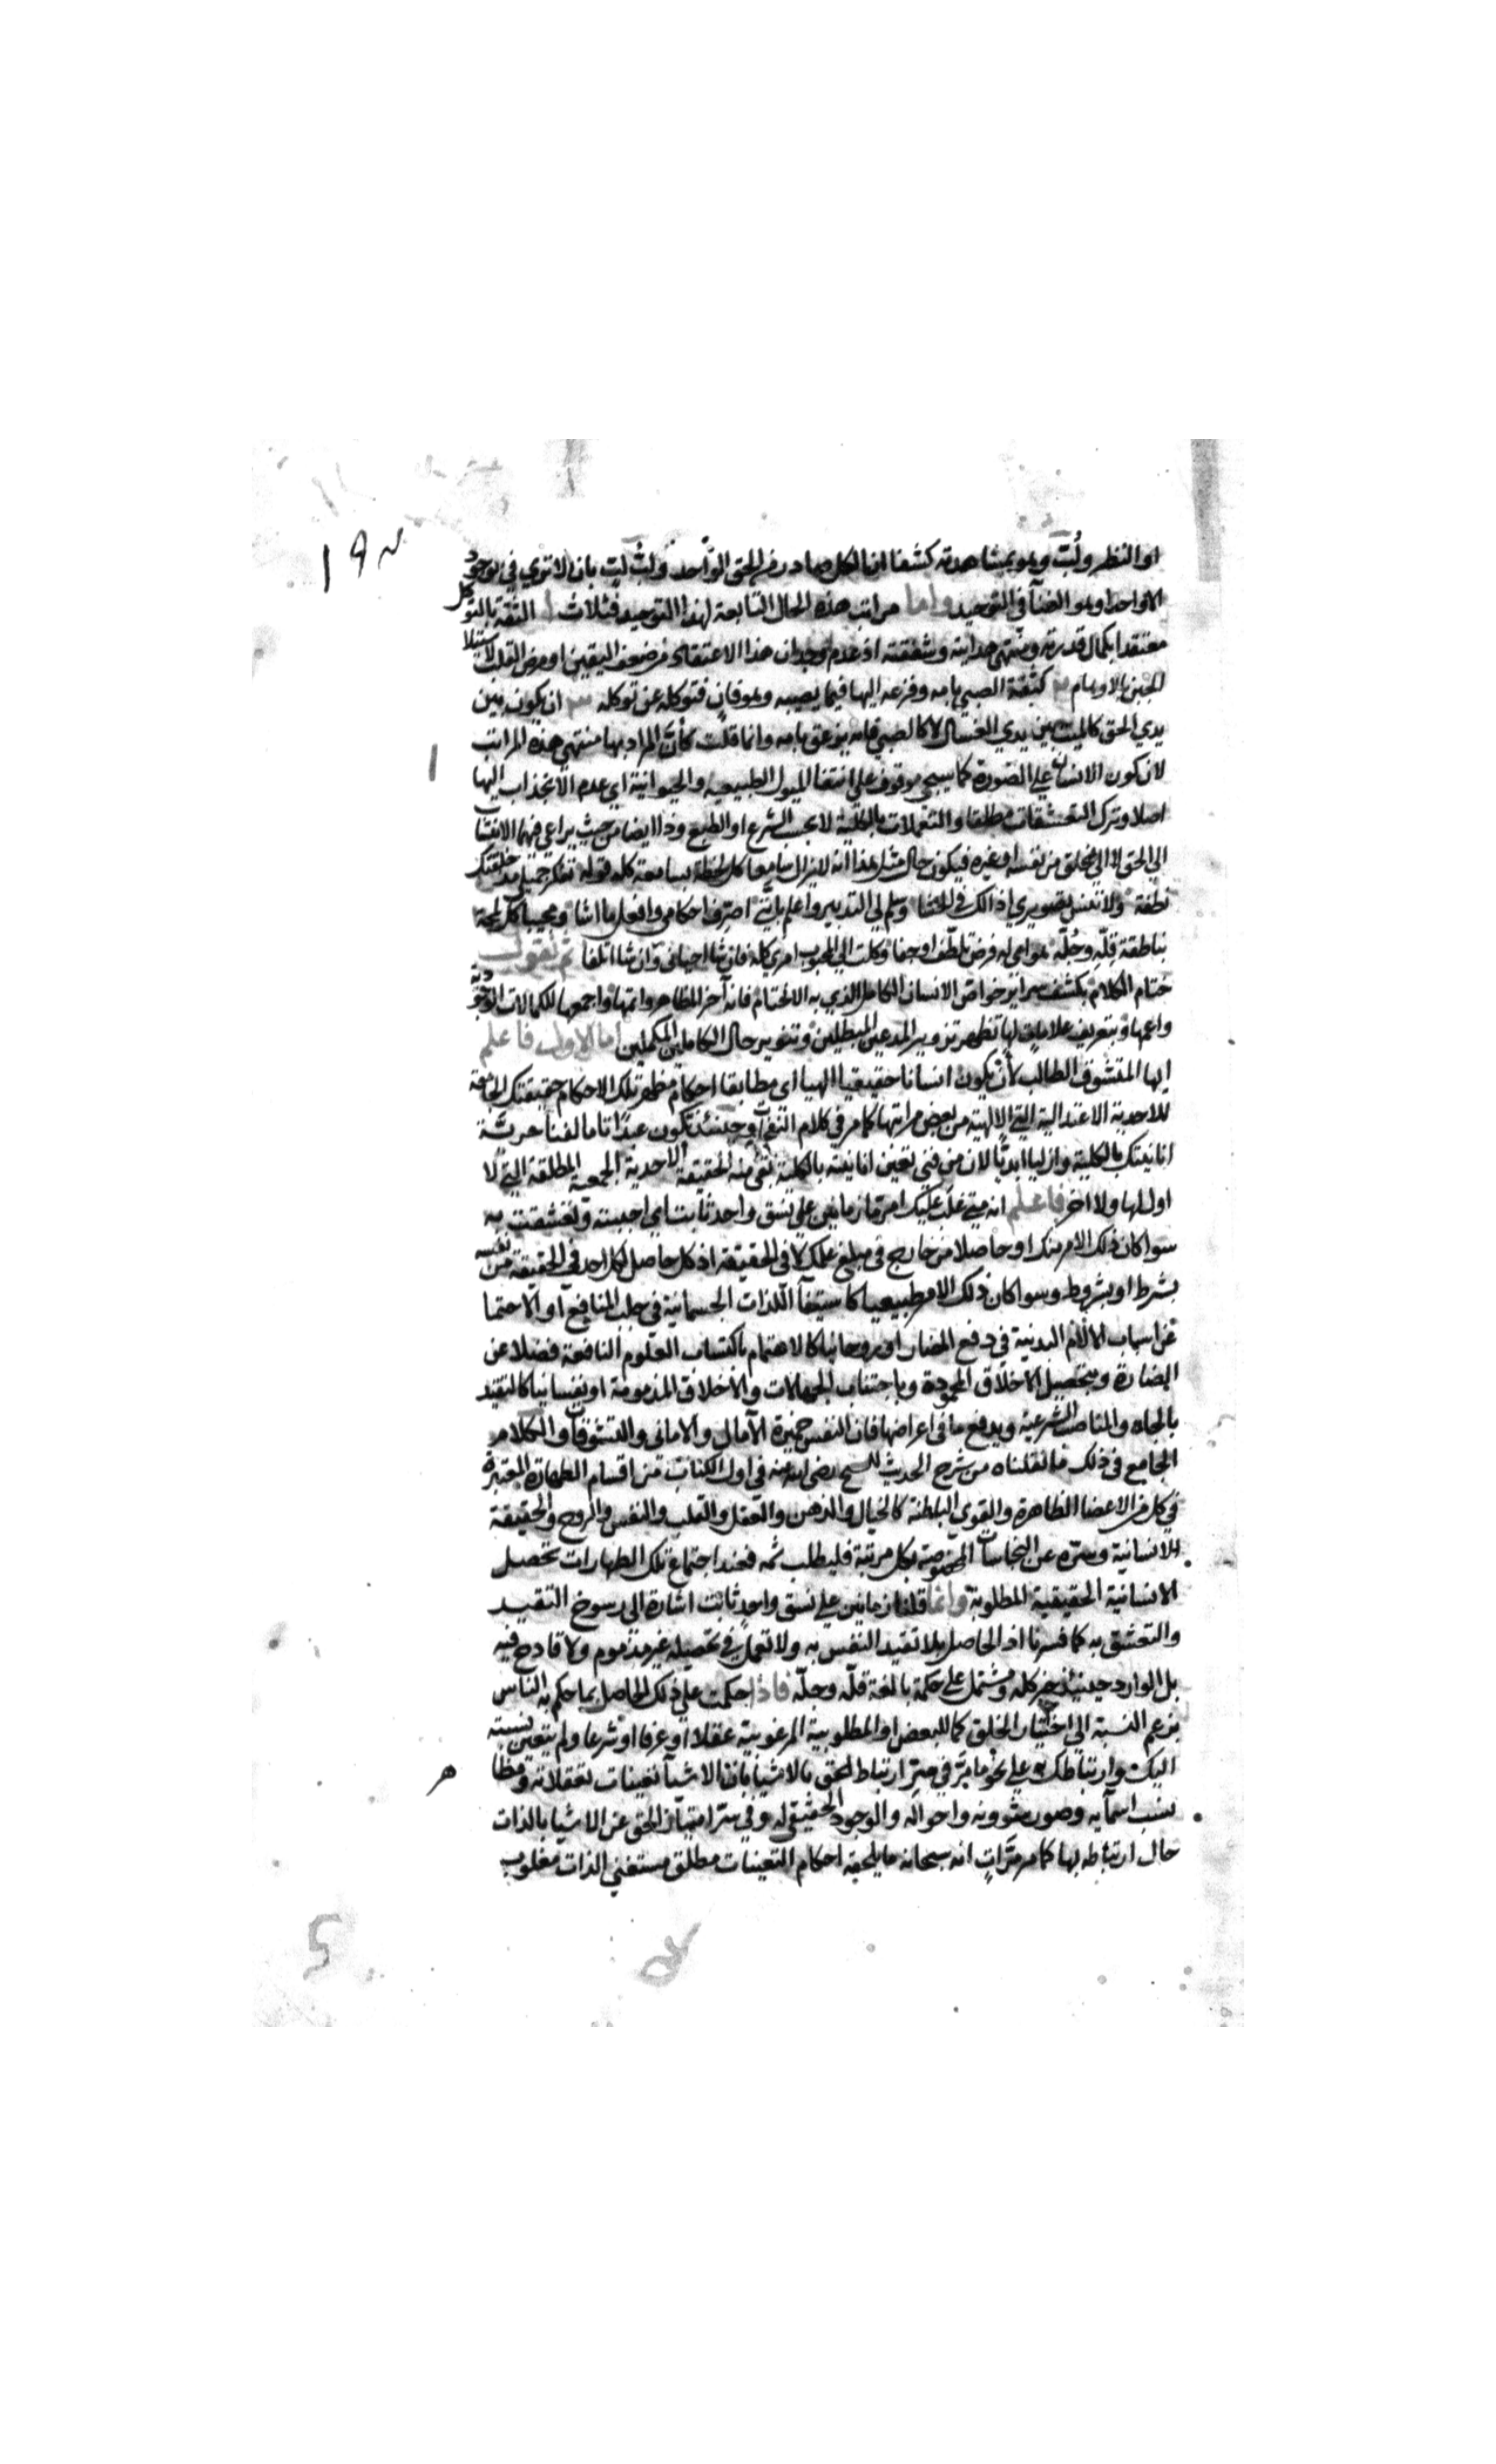 ١٩٣
او النظر ولُبّ وهو بمشاهدته كشفا ان الكل صادر من الحق الواحد ولبّ لبّ بان لا تري في الوجود
الا واحدا وهو الفنآ في التوحيد واما مراتب هذه الحال التابعة لهذا التوحيد فثلاث ا الثقة بالتوكل
معتقدا بكمال قدرته ومنتهي هدايته وشفقته اذ عدم وجدان هذا الاعتقاد من ضعف اليقين او مرض القلب لاستيلا
الجبن بالاوهام ٢ كثقة الصبي بامه وفزعه اليها فيما يصيبه وهو فانٍ فتوكله عن توكله ٣ ان يكون بين
يدي الحق كالميت بين يدي الغسال لا كالصبي فانه يزعق بامه وانما قلت كأنّ المراد بها منتهي هذه المراتب
لان كون الانسان علي الصورة كما سيجي موقوف علي انتفا الميول الطبيعيه والحيوانية اي عدم الانجذاب اليها
اصلا وترك التعشقات مطلقا والتعملات بالكلية لا بحسب الشرع او الطبع وذا ايضا من حيث يراعي فيهما الانتساب
الي الحق لا الي مخلق من نفسه او غيره فيكون حال مثل هذا انه لا يزال سامعا كل لحظة بسامعة كله قوله تفكر جميلي مذ خلقتك
نطفة ولا تنس تصويري اذ الك في الحشا وسلم لي التدبير واعلم بانّني اصرّف احكامي وافعل ما اشا ومجيبا كل لمحة
بناطقة قِلّه وجُلّه هوامي له فرض تلطّف او جفا وكلت الي المحبوب امري كله فان شا احياني وان شا اتلفا ثم نقول
ختام الكلام بكشف سراير خواص الانسان الكامل الذي به الاختتام فانه آخر المظاهر واتمها واجمعها للكمالات الوجودية
واعمها وبتعريف علامات لها تظهر تزوير المدعين المبطلين وتنوير حال الكاملين المكملين اما الاول فاعلم
ايها المتشوف الطالب لأن يكون انسانا حقيقيا الهيا اي مطابقا احكام مظهر تلك الاحكام حقيقتك الجامعة
للاحدية الاعتدالية التي الالهية من بعض مراتبها كما مر في كلام النفحات وحينئذ تكون عبدا تاما لفنا حريّة
انانيتك بالكلية وازليا ابديّا لان من فني تعين انانيته بالكلية بقي منه الحقيقة الاحدية الجمعية المطلقة التي لا
اول لها ولا اخر فاعلم انه متي غلب عليك امر ما زمانين علي نسق واحد ثابت اي احببته وتعشقت به
سوا كان ذلك الامر منك او حاصلا من خارج في مبلغ علمك لا في الحقيقة اذ كل حاصل لكل احد في الحقيقة من نفسه
بشرط او بشروط وسوا كان ذلك الامر طبيعيا كاستيفآ اللذات الجسمانية في جلب المنافع او الاحتما
عن اسباب الالام البدنية في دفع المضار او روحانيا كالاهتمام باكتساب العلوم النافعة فضلا عن
الضارة وبتحصيل الاخلاق المحمودة وباجتناب الجهالات والاخلاق المذمومة او نفسانيا كالتقيد
بالجاه والمناصب الشرعية وبدفع ما في اعراضها فان النفس خميرة الآمال والاماني والتشوقات والكلام
الجامع في ذلك ما نقلناه من شرح الحديث للشيخ رضي الله عنه في اول الكتاب من اقسام الطهارة المعتبرة
في كل من الاعضا الظاهرة والقوي الباطنة كالخيال والذهن والعقل والقلب والنفس والروح والحقيقة
للانسانية وسرّه عن النجاسات المخصوصة بكل مرتبة فليطلب ثمه فعند اجتماع تلك الطهارات تحصل
الانسانية الحقيقية المطلوبة وانما قلنا زمانين علي نسق واحد ثابت اشارة الي رسوخ التقيد
والتعشق به كما فسرنا اذ الحاصل بلا تقيد النفس به ولا تعمل في تحصيله غير مذموم ولا قادح فيه
بل الوارد حينئذ خير كله ومشتمل علي حكمة بالغة قلّه وجلّه فاذا حكمت علي ذلك الحاصل بما حكم به الناس
بزعم النسبة الي اختيار الخلق كما للبعض او المطلوبية المرغوبية عقلا او عرفا او شرعا ولم يتعين نسبته
اليك وارتباطك به علي نحو ما مرّ في سرّ ارتباط الحق بالاشيا بان الاشيآ تعينات تعقلاته ومظا
نسب اسمآيه وصور شوونه واحواله والوجود الحقيقي له وفي سرّ امتياز الحق عن الاشيا بالذات
حال ارتباطه بها كما مر مرّات انه سبحانه ما يلحقه احكام التعينات مطلق مستغني الذات مغلوب